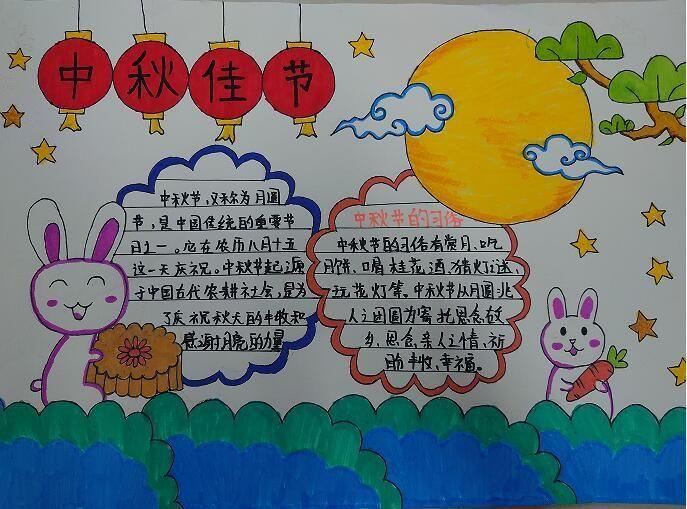 中秋佳节
中秋节，又称为月圆
节，是中国传统的重要节
日之一。它在农历八月十五
这一天庆祝。中秋节起源
于中国古代农耕社会，是为
了庆祝秋天的丰收和
感谢月亮的力量
中秋节的习俗
中秋节的习俗有赏月、吃
月饼、喝桂花酒、猜灯谜、
玩花灯等。中秋节以月圆兆
人之团圆为寄托思念故
乡，思念亲人之情，祈
盼丰收、幸福。